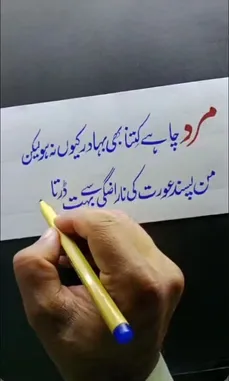 مرد چاہے کتنا بھی بہادر کیوں نہ ہو لیکن
من پسند عورت کی ناراضگی سے بہت ڈرتا